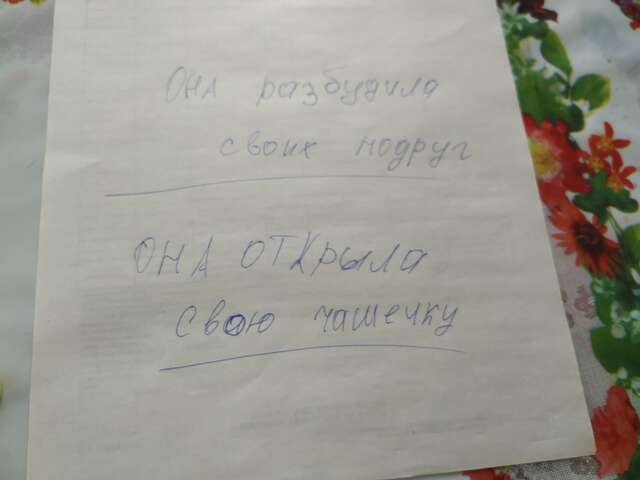 Она разбудила
своих подруг
Она открыла
свою чашечку